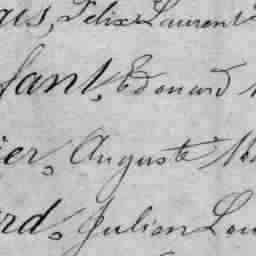 Felix Laurent
fant, Edouard
ier, Auguste
ard, Julien Lou